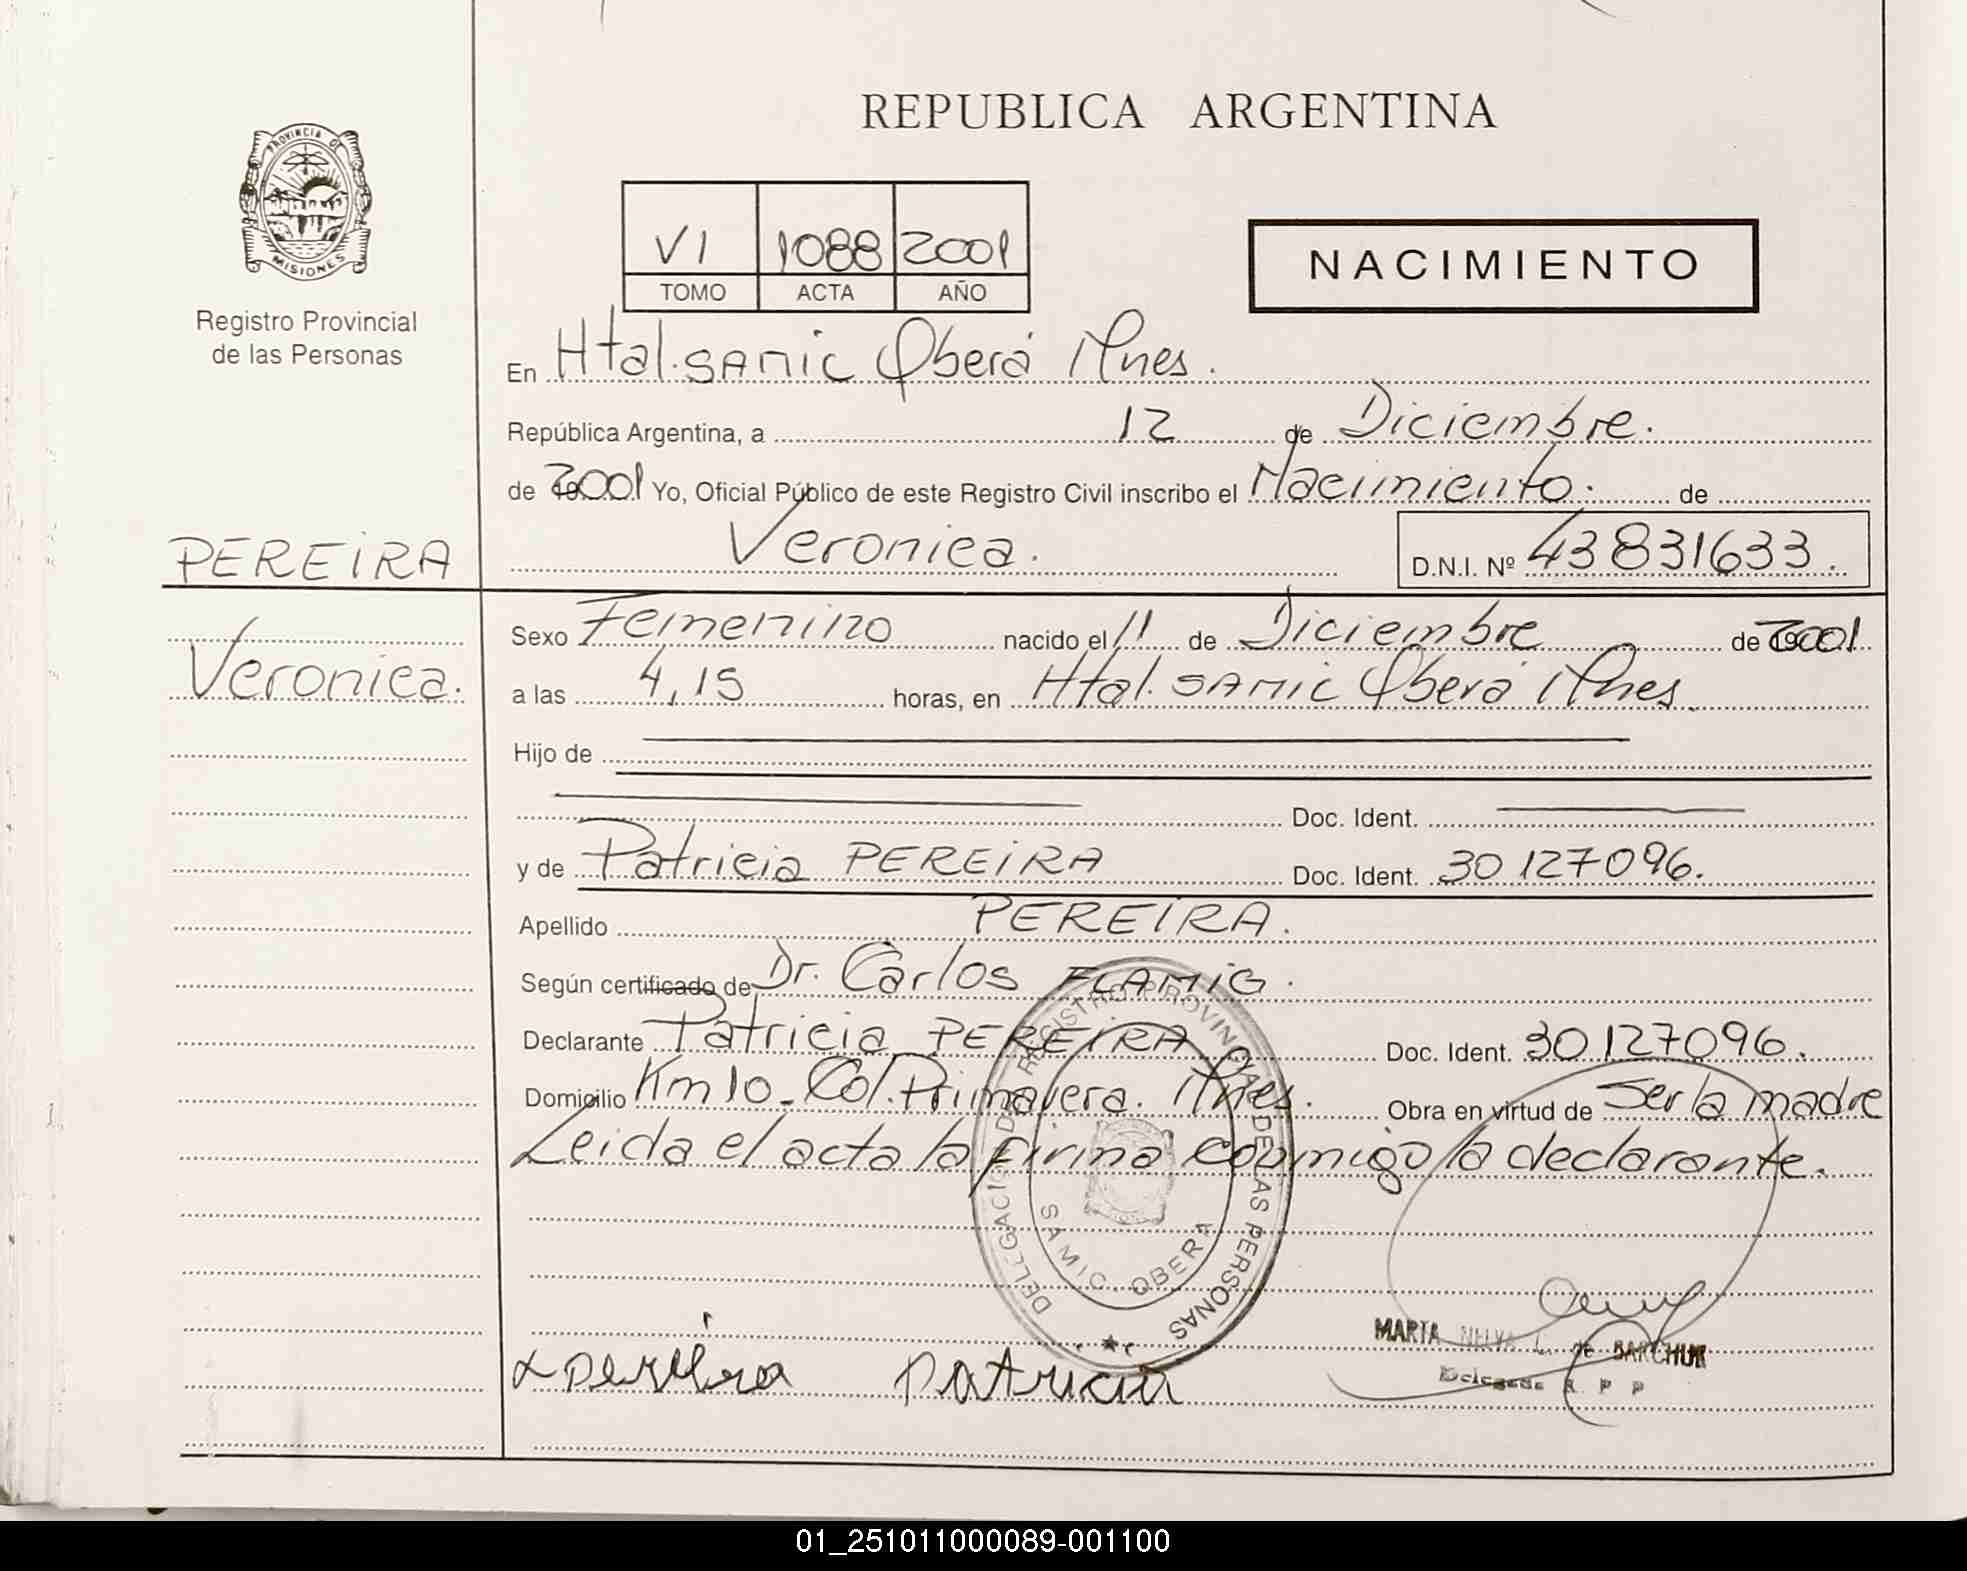 REPUBLICA ARGENTINA
PROVINCIA DE
MISIONES
Registro Provincial
de las Personas
VI 1088 2001
TOMO ACTA AÑO
NACIMIENTO
En Htal. SAMIC Oberá Mnes.
República Argentina, a 12 de Diciembre.
de 2001 Yo, Oficial Público de este Registro Civil inscribo el Nacimiento. de
PEREIRA
Veronica. D.N.I. Nº 43831633.
Veronica.
Sexo Femenino nacido el 11 de Diciembre de 2001
a las 4,15 horas, en Htal. SAMIC Oberá Mnes.
Hijo de
Doc. Ident.
y de Patricia PEREIRA Doc. Ident. 30127096.
Apellido PEREIRA.
Según certificado de Dr. Carlos FLAMIG.
Declarante Patricia PEREIRA Doc. Ident. 30127096.
Domicilio Km 10_Col. Primavera. Mnes. Obra en virtud de Ser la madre
Leida el acta la firma conmigo la declarante.
DELEGACION DE REGISTRO PROVINCIAL DE LAS PERSONAS
SAMIC OBERA
pereira patricia
MARTA NELVA L. de BARCHUK
Delegada R P P
01_251011000089-001100